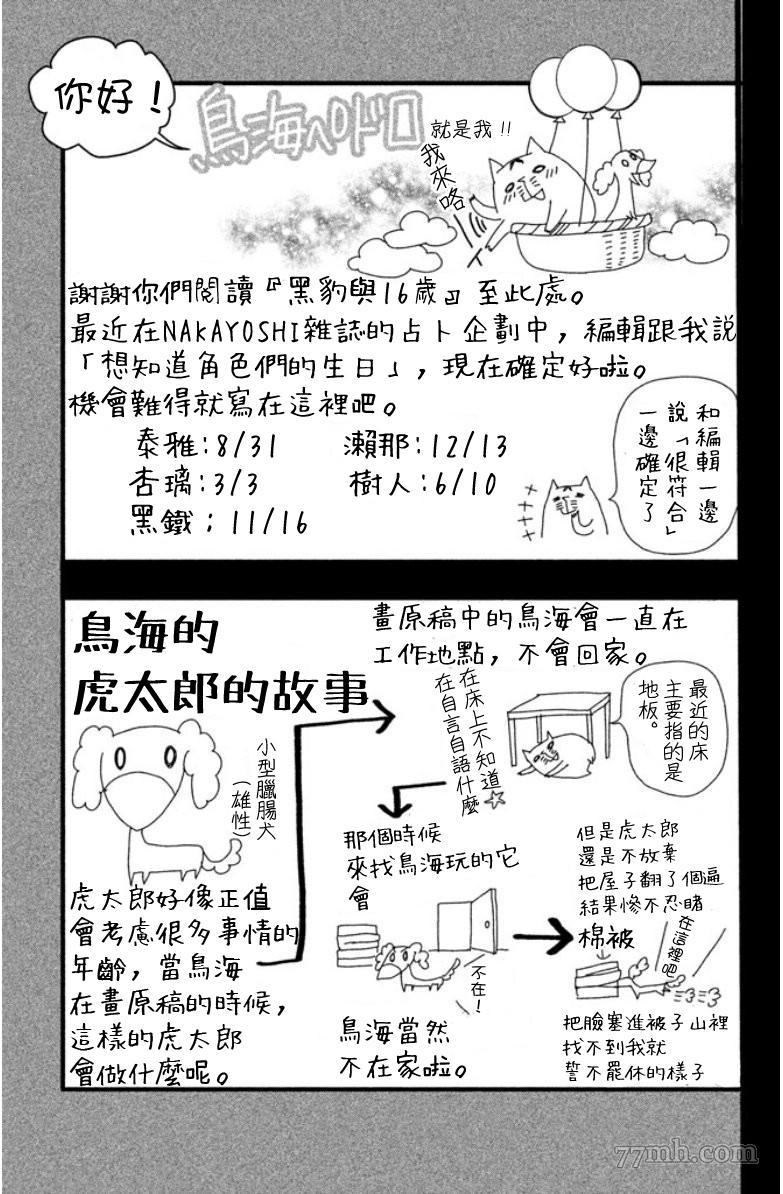 你好！
鳥海ペドロ
就是我!!
我來咯
謝謝你們閱讀『黑豹與16歲』至此處。
最近在NAKAYOSHI雜誌的占卜企劃中，編輯跟我說
「想知道角色們的生日」，現在確定好啦。
機會難得就寫在這裡吧。
泰雅：8/31　瀨那：12/13
杏璃：3/3　樹人：6/10
黑鐵；11/16
和編輯一邊
說「很符合」
一邊確定了
鳥海的
虎太郎的故事
小型臘腸犬
（雄性）
虎太郎好像正值
會考慮很多事情的
年齡，當鳥海
在畫原稿的時候，
這樣的虎太郎
會做什麼呢。
畫原稿中的鳥海會一直在
工作地點，不會回家。
最近的床
主要指的是
地板。
在床上不知道
在自言自語什麼☆
那個時候
來找鳥海玩的它
會
不在！
鳥海當然
不在家啦。
但是虎太郎
還是不放棄
把屋子翻了個遍
結果慘不忍睹
棉被
在這裡吧
把臉塞進被子山裡
找不到我就
誓不罷休的樣子
77mh.com